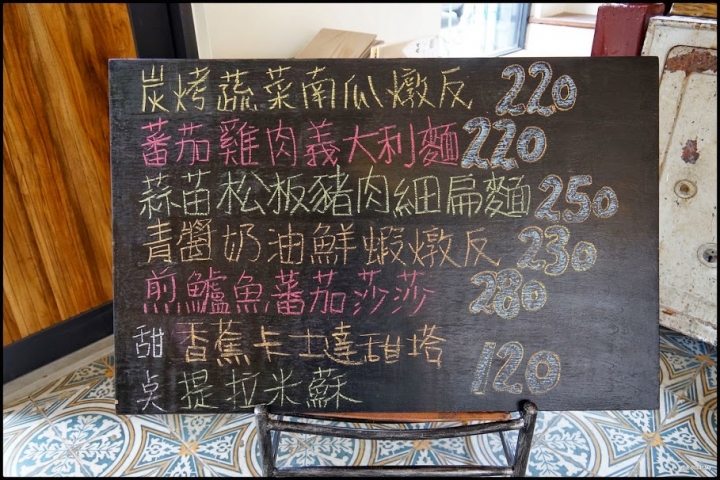 炭烤蔬菜南瓜燉反 220
蕃茄雞肉義大利麵 220
蒜苗松板豬肉細扁麵 250
青醬奶油鮮蝦燉反 230
煎鱸魚蕃茄莎莎 280
甜 香蕉卡士達甜塔 120
点 提拉米蘇